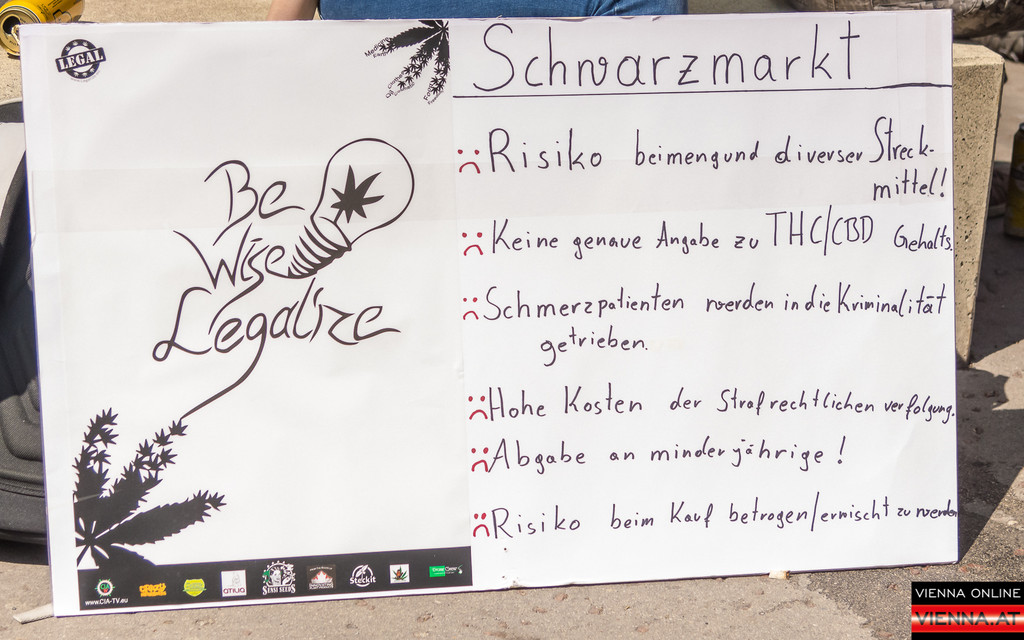 LEGAL
Be
Wise
Legalize
www.CIA-TV.eu
ATIVA
SENSI SEEDS
Steckit
Schwarzmarkt
Risiko beimengund diverser Streck-
mittel!
Keine genaue Angabe zu THC/CBD Gehalts.
Schmerzpatienten werden in die Kriminalität
getrieben.
Hohe Kosten der Strafrechtlichen verfolgung.
Abgabe an minderjährige!
Risiko beim Kauf betrogen/erwischt zu werden
VIENNA ONLINE
VIENNA.AT